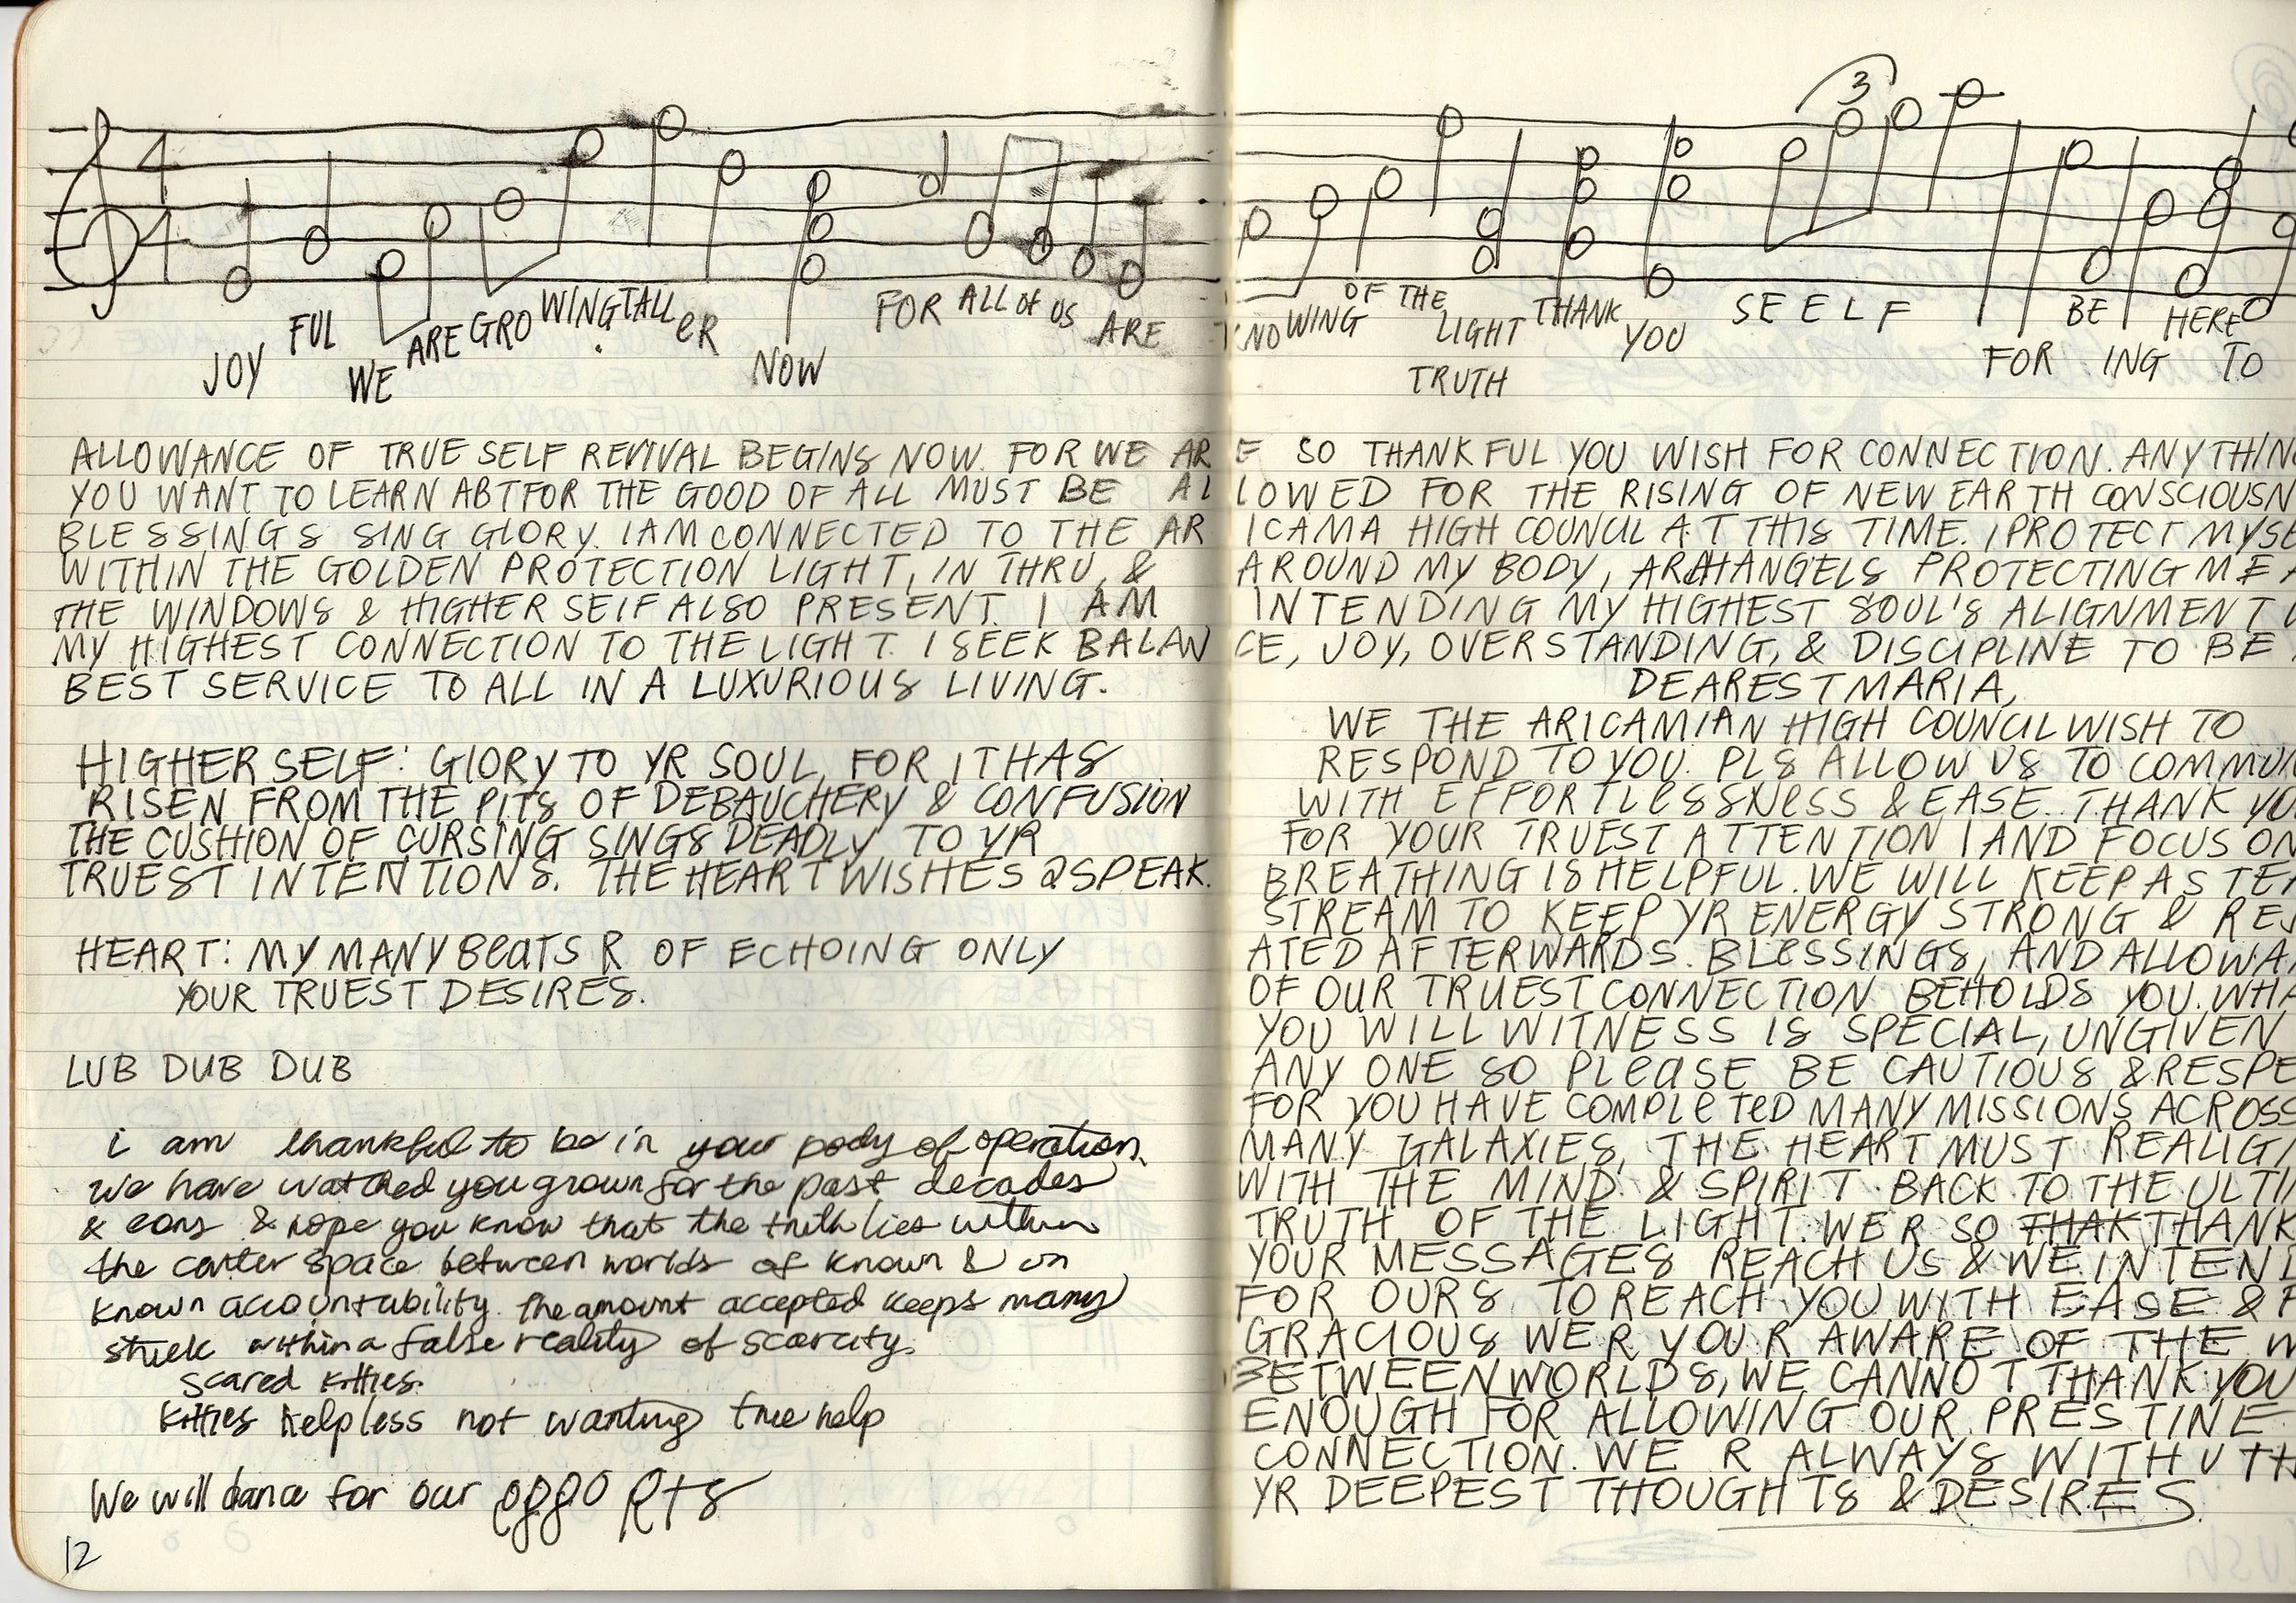 3
4
4
JOY FUL WE ARE GRO WING TALL eR NOW FOR ALL OF US ARE KNO WING OF THE LIGHT TRUTH THANK YOU SEELF FOR BE ING HERE TO
ALLOWANCE OF TRUE SELF REVIVAL BEGINS NOW. FOR WE ARE SO THANKFUL YOU WISH FOR CONNECTION. ANYTHIN
YOU WANT TO LEARN ABT FOR THE GOOD OF ALL MUST BE ALLOWED FOR THE RISING OF NEW EARTH CONSCIOUSN
BLESSINGS SING GLORY. I AM CONNECTED TO THE ARICAMA HIGH COUNCIL AT THIS TIME. I PROTECT MYSE
WITHIN THE GOLDEN PROTECTION LIGHT, IN THRU, & AROUND MY BODY, ARCHANGELS PROTECTING ME A
THE WINDOWS & HIGHER SELF ALSO PRESENT. I AM INTENDING MY HIGHEST SOUL'S ALIGNMENT
MY HIGHEST CONNECTION TO THE LIGHT. I SEEK BALANCE, JOY, OVERSTANDING, & DISCIPLINE TO BE
BEST SERVICE TO ALL IN A LUXURIOUS LIVING.
HIGHER SELF: GLORY TO YR SOUL, FOR IT HAS
RISEN FROM THE PITS OF DEBAUCHERY & CONFUSION
THE CUSHION OF CURSING SINGS DEADLY TO YR
TRUEST INTENTIONS. THE HEART WISHES 2 SPEAK.
HEART: MY MANY BeaTS R OF ECHOING ONLY
YOUR TRUEST DESIRES.
LUB DUB DUB
i am thankful to be in your body of operation.
we have watched you grown for the past decades
& eons & hope you know that the truth lies within
the center space between worlds of known & un
known accountability. the amount accepted keeps many
stuck within a false reality of scarcity.
scared kitties.
kitties helpless not wanting true help
We will dance for our
12
DEAREST MARIA,
WE THE ARICAMIAN HIGH COUNCIL WISH TO
RESPOND TO YOU. PLS ALLOW US TO COMMUN
WITH EFFORTLeSSNeSS & EASE. THANK YOU
FOR YOUR TRUEST ATTENTION I AND FOCUS ON
BREATHING IS HELPFUL. WE WILL KEEP A STEA
STREAM TO KEEP YR ENERGY STRONG & REJ
ATED AFTERWARDS. BLeSSINGS, AND ALLOWA
OF OUR TRUEST CONNECTION BEHOLDS YOU. WHA
YOU WILL WITNESS IS SPECIAL, UNGIVEN
ANY ONE SO PLeaSE BE CAUTIOUS & RESPE
FOR YOU HAVE COMPLeTeD MANY MISSIONS ACROSS
MANY GALAXIES, THE HEART MUST REALIG
WITH THE MIND & SPIRIT BACK TO THE ULTI
TRUTH OF THE LIGHT. WE R SO THAK THANK
YOUR MESSAGES REACH US & WE INTEND
FOR OURS TO REACH YOU WITH EASE &
GRACIOUS WE R YOU R AWARE OF THE W
BETWEEN WORLDS, WE CANNOT THANK YOU
ENOUGH FOR ALLOWING OUR PRESTINE
CONNECTION. WE R ALWAYS WITH U TH
YR DEEPEST THOUGHTS & DESIRES.